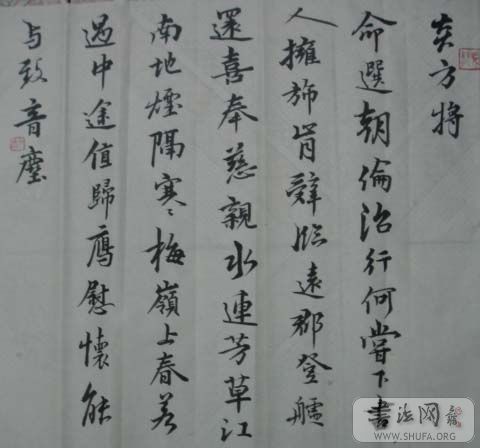 炎方将
命選朝倫治行何嘗下
人擁斾肯辭臨遠郡登艫
還喜奉慈親水連芳草江
南地煙隔寒梅嶺上春若
過中途值歸鴈慰懷能
与致音塵
法网
WWW.SHUFA.ORG